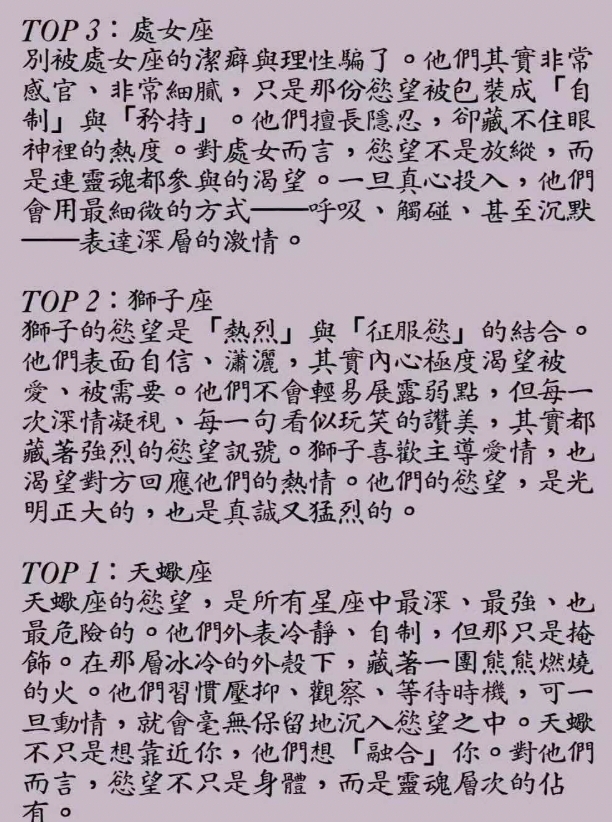 TOP 3：處女座
別被處女座的潔癖與理性騙了。他們其實非常
感官、非常細膩，只是那份慾望被包裝成「自
制」與「矜持」。他們擅長隱忍，卻藏不住眼
神裡的熱度。對處女而言，慾望不是放縱，而
是連靈魂都參與的渴望。一旦真心投入，他們
會用最細微的方式——呼吸、觸碰、甚至沉默
——表達深層的激情。
TOP 2：獅子座
獅子的慾望是「熱烈」與「征服慾」的結合。
他們表面自信、瀟灑，其實內心極度渴望被
愛、被需要。他們不會輕易展露弱點，但每一
次深情凝視、每一句看似玩笑的讚美，其實都
藏著強烈的慾望訊號。獅子喜歡主導愛情，也
渴望對方回應他們的熱情。他們的慾望，是光
明正大的，也是真誠又猛烈的。
TOP 1：天蠍座
天蠍座的慾望，是所有星座中最深、最強、也
最危險的。他們外表冷靜、自制，但那只是掩
飾。在那層冰冷的外殼下，藏著一團熊熊燃燒
的火。他們習慣壓抑、觀察、等待時機，可一
旦動情，就會毫無保留地沉入慾望之中。天蠍
不只是想靠近你，他們想「融合」你。對他們
而言，慾望不只是身體，而是靈魂層次的佔
有。